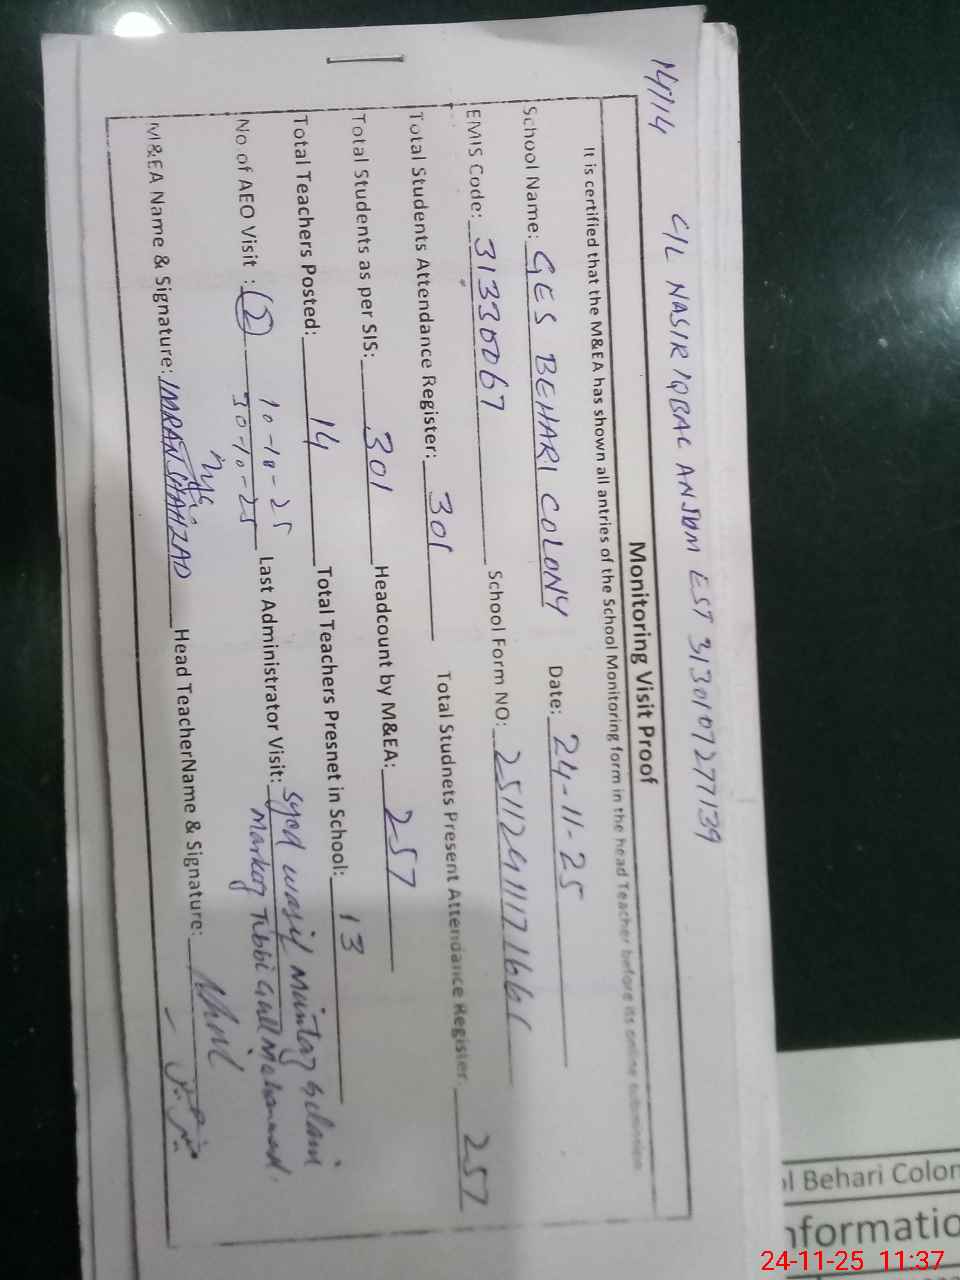 14/14 C/L NASIR IQBAL ANJUM EST 3130107277139
Monitoring Visit Proof
It is certified that the M&EA has shown all antries of the School Monitoring form in the head Teacher before its online submission
School Name: GES BEHARI COLONY Date: 24-11-25
EMIS Code: 31330067 School Form NO:
Total Students Attendance Register: 301 Total Studnets Present Attendance Register. 257
Total Students as per SIS: 301 Headcount by M&EA: 257
Total Teachers Posted: 14 Total Teachers Presnet in School: 13
No of AEO Visit : (2) 10-10-25 Last Administrator Visit: Syed wasif
30-10-25 Tibbi Gull Mohammad.
M&EA Name & Signature: IMRAN SHAHZAD Head TeacherName & Signature:
l Behari Colon
nformatio
24-11-25 11:37